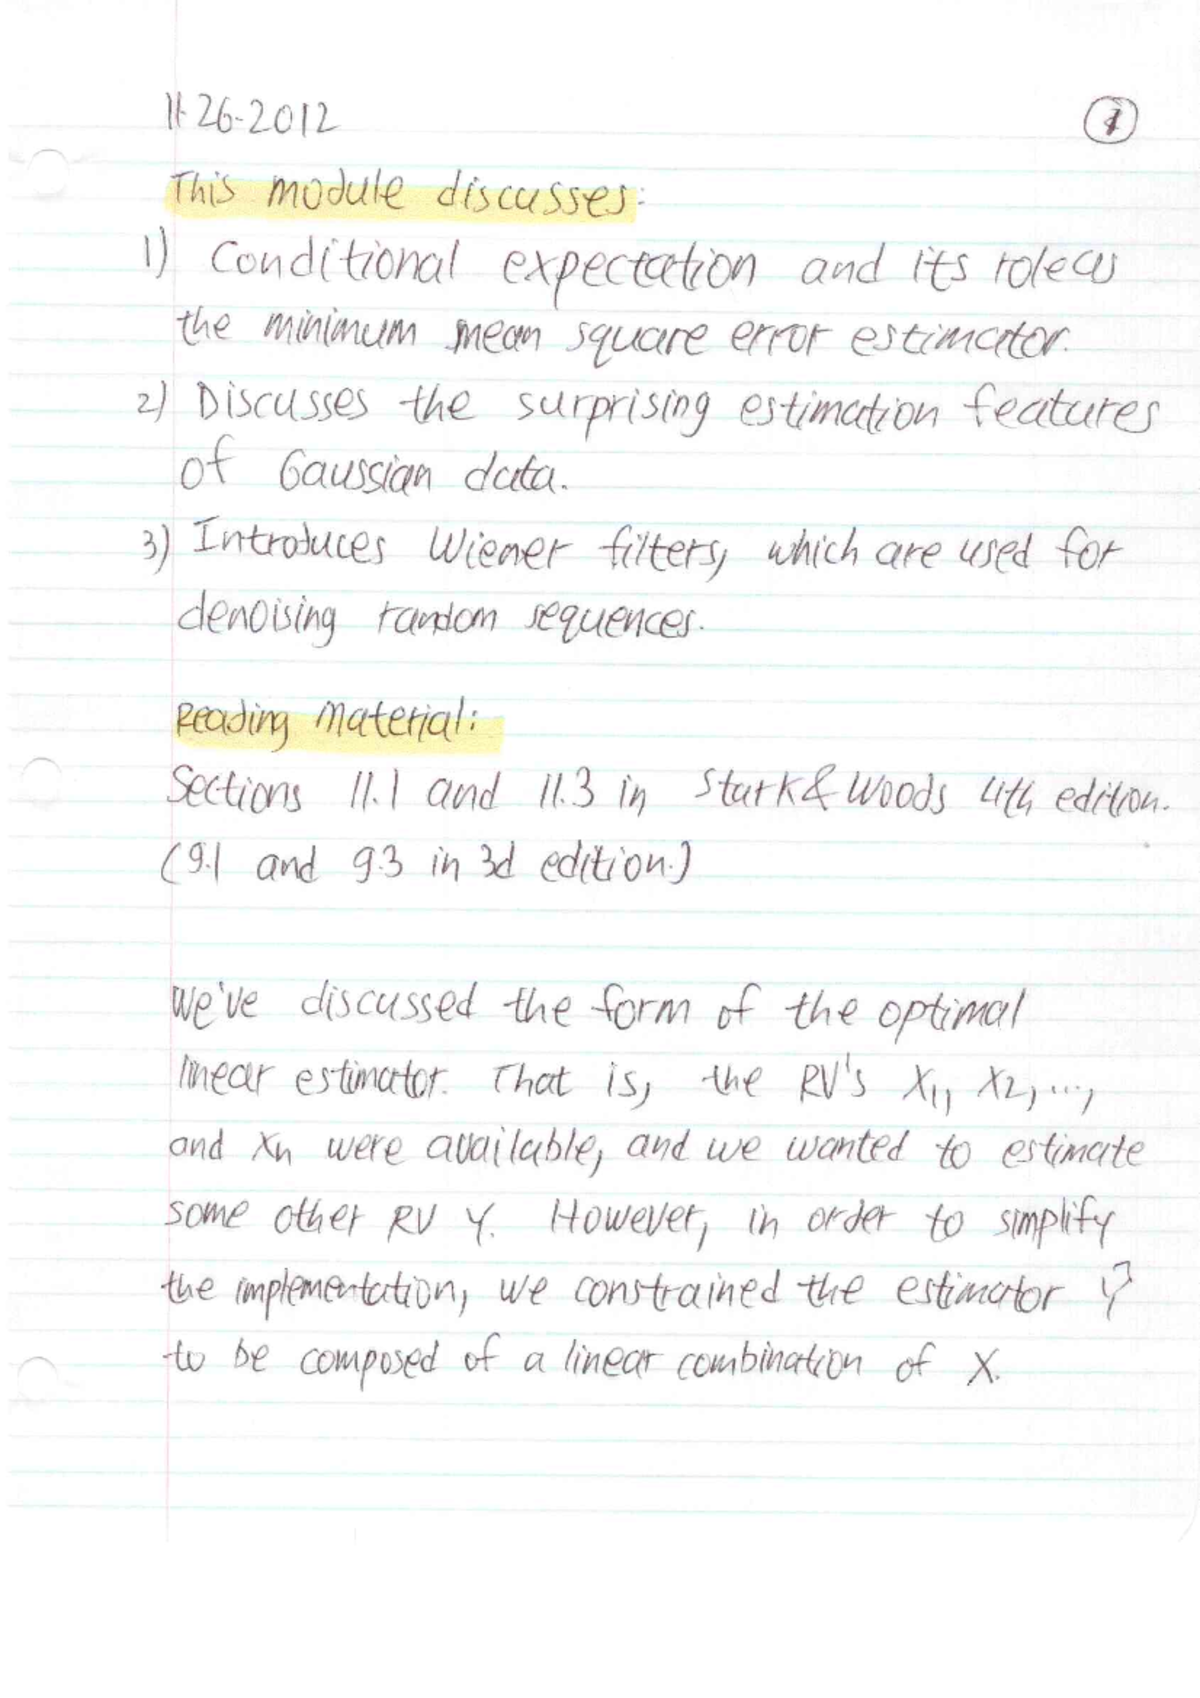 11-26-2012
1
This module discusses:
1) Conditional expectation and its role as
the minimum mean square error estimator.
2) Discusses the surprising estimation features
of Gaussian data.
3) Introduces Wiener filters, which are used for
denoising random sequences.
Reading Material:
Sections 11.1 and 11.3 in Stark & Woods 4th edition.
(9.1 and 9.3 in 3d edition.)
We've discussed the form of the optimal
linear estimator. That is, the RV's X1, X2, ...,
and Xn were available, and we wanted to estimate
some other RV Y. However, in order to simplify
the implementation, we constrained the estimator Ŷ
to be composed of a linear combination of X.